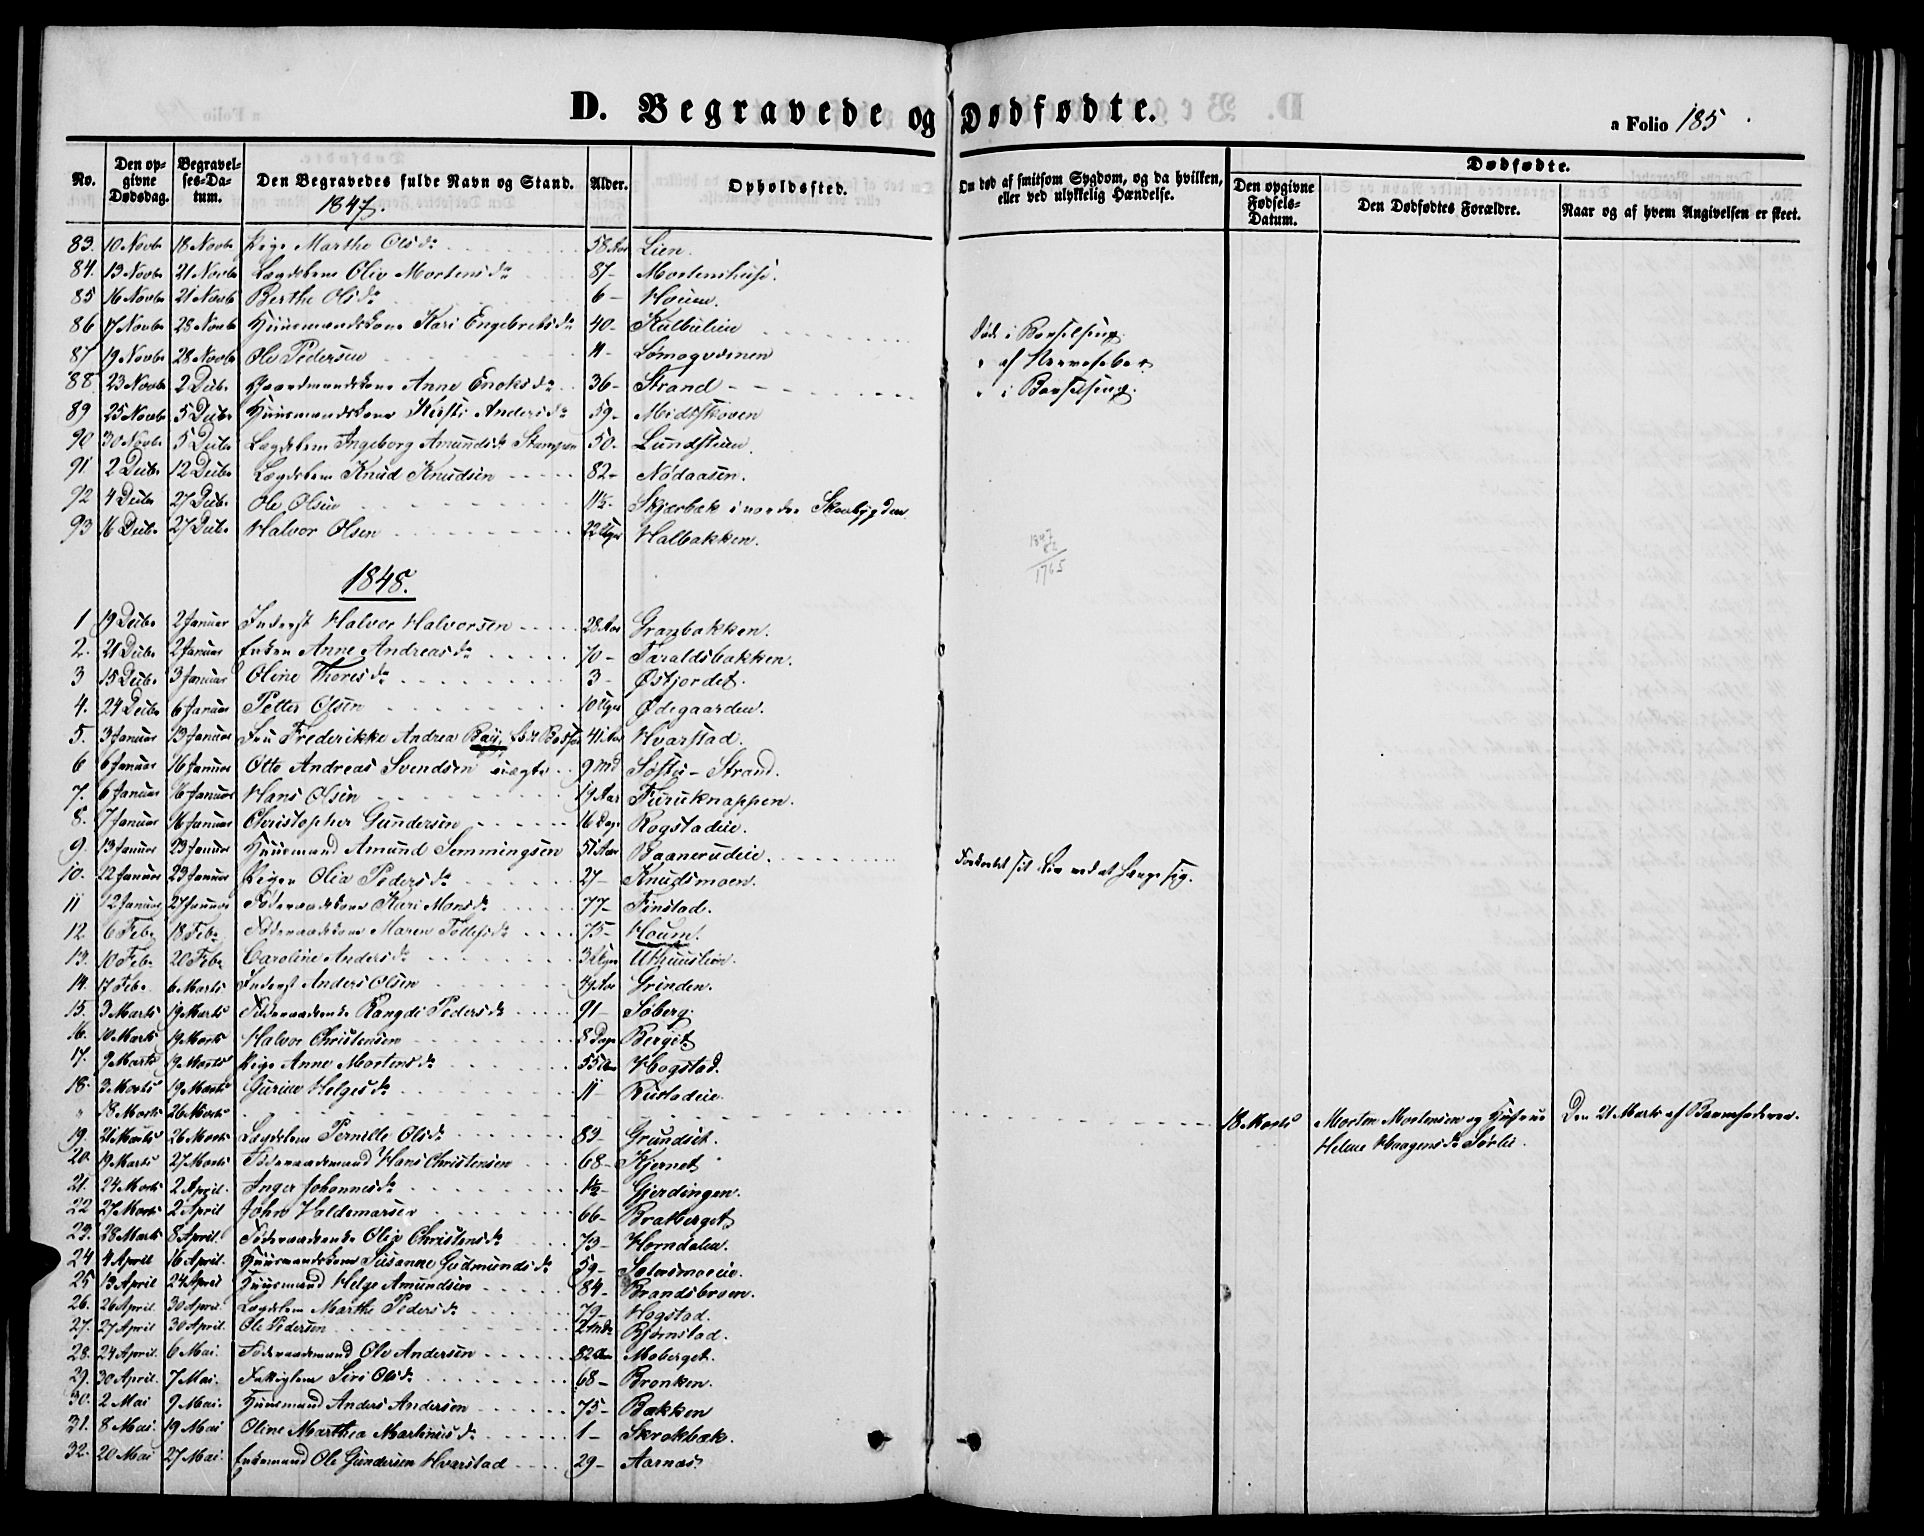 D. Begravede og Dødfødte.
a Folio 185.
No. Den opgivne Dødsdag. Begravelses-Datum. Den Begravedes fulde Navn og Stand. Alder. Opholdssted. Om død af smitsom Sygdom, og da hvilken, eller ved ulykkelig Hændelse. Dødfødte. Den opgivne Fødsels-Datum. Den Dødfødtes Forældre. Naar og af hvem Angivelsen er skeet.
1847.
83. 10 Novbr 18 Novbr Pige Marthe Olsdr 58 Aar Lien.
84. 13 Novbr 21 Novbr Lægdslem Oliv Mortensdr 87 - Mortenshuse.
85 16 Novbr 21 Novbr Berthe Olsdr 6 - Houm.
86 17 Novbr 28 Novbr Huusmandskone Kari Engebretsdr 40 - Kulbulien Død i Barselseng.
87 19 Novbr 28 Novbr Ole Pedersen 11 - Lømogvemen " af Nervefeber
88. 23 Novbr 2 Decbr Gaardmandskone Anne Enoksdr 36 - Strand " i Barselseng.
89 25 Novbr 5 Decbr Huusmandskone Kersti Andersdr 59 - Midtskoven
90 30 Novbr 5 Decbr Lægdslem Ingeborg Amundsdr Stampen 50 - Lundsteen
91 2 Decbr 12 Decbr Lægdslem Knud Knudsen 82 - Nødaasen.
92 4 Decbr 27 Decbr Ole Olsen 11½ - Skjærbæk i nordre Skovbygden
93 16 Decbr 27 Decbr Halvor Olsen 22 Uger Halbakken.
1847
82
1765
1848.
1 19 Decbr 2 Januar Inderst Halvor Halvorsen 28 Aar Granbakken.
2. 21 Decbr 2 Januar Enken Anne Andreasdr 70 - Taraldsbakken.
3 15 Decbr 3 Januar Oline Thoresdr 3 - Østjordet.
4. 24 Decbr 6 Januar Petter Olsen 10 Uger Ødegaarden.
5. 3 Januar 13 Januar Fru Frederikke Andrea Bay, 41 Aar Hvarstad.
6 6 Januar 16 Januar Otto Andreas Svendsen uægte 9 Md Søstu - Strand.
7. 6 Januar 16 Januar Hans Olsen 19 Aar Furuknappen.
8. 7 Januar 16 Januar Christopher Gundersen 16 Dage Rogstadeie.
9. 13 Januar 23 Januar Huusmand Amund Semmingsen 51 Aar Baanerudeie. Forkortet sit Liv ved at hænge sig.
10. 12 Januar 23 Januar Pigen Olia Pedersdr 27 - Knudsmoen.
11 12 Januar 27 Januar Føderaadskone Kari Monsdr 77 - Finstad.
12. 6 Febr 18 Febr Føderaadskone Maren Tollefsdr 75 - Houm.
13. 10 Febr 20 Febr Caroline Andersdr 3 Uger Uthuuslien.
14. 17 Febr 6 Marts Inderst Anders Olsen 44 Aar Grinden.
15. 3 Marts 19 Marts Føderaadsenke Rangdi Pedersdr 91 - Søberg.
16. 10 Marts 19 Marts Halvor Christensen 8 Dage Berget
17. 9 Marts 19 Marts Pige Anne Mortensdr 55 Aar Hogstad.
18. 3 Marts 19 Marts Gurine Helgesdr 11 - Rustadeie.
" 18 Marts 26 Marts 18 Marts Morten Mortensen og Hustrue Helene Haagensdr Sørlie. Den 21 Marts af Barnefaderen.
19. 21 Marts 26 Marts Lægdslem Pernille Olsdr 83 - Grundset.
20. 19 Marts 27 Marts Føderaadsmand Hans Christensen 68 - Kjernet
21. 24 Marts 2 April. Inger Johannesdr 1½ - Gjerdingen.
22 27 Marts 2 April John Valdemarsen 66 - Bratberget
23. 28 Marts 8 April. Føderaadsenke Olia Christensdr 73 - Horndalen.
24 4 April 16 April. Huusmandskone Susanne Gudmundsdr 59 - Sætersmoeie.
25 13 April 24 April Huusmand Helge Amundsen 84 - Brandsbroen.
26. 26 April 30 April. Lægdslem Marthe Pedersdr 79 - Hogstad.
27. 27 April 30 April. Ole Pedersen 2 Mdr Bjørnstad.
28. 24 April. 6 Mai. Føderaadsmand Ole Andersen 82 Aar Moberget.
29. 30 April. 7 Mai. Fattiglem Siri Olsdr 68 - Bronken.
30. 2 Mai 9 Mai. Huusmand Anders Andersen 75 - Bækken
31. 8 Mai. 19 Mai Oline Marthea Martinusdr 1 - Skrakbæk.
32. 20 Mai 27 Mai. Enkemand Ole Gundersen Hvarstad 29 - Aarnæs.